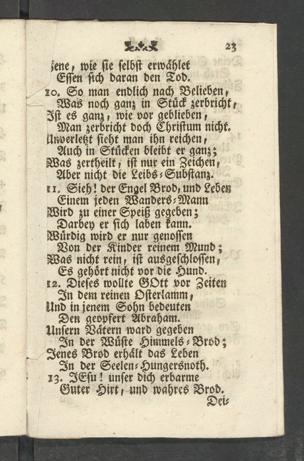 23
jene, wie sie selbst erwählet
Essen sich daran den Tod.
10. So man endlich nach Belieben,
Was noch ganz in Stück zerbricht,
Ist es ganz, wie vor geblieben,
Man zerbricht doch Christum nicht.
Unverletzt sieht man ihn reichen,
Auch in Stücken bleibt er ganz;
Was zertheilt, ist nur ein Zeichen,
Aber nicht die Leibs-Substanz.
11. Sieh! der Engel Brod, und Leben
Einem jeden Wanders-Mann
Wird zu einer Speiß gegeben;
Darbey er sich laben kann.
Würdig wird er nur genossen
Von der Kinder reinem Mund;
Was nicht rein, ist ausgeschlossen,
Es gehört nicht vor die Hund.
12. Dieses wollte GOtt vor Zeiten
In dem reinen Osterlamm,
Und in jenem Sohn bedeuten
Den geopfert Abraham.
Unsern Vätern ward gegeben
In der Wüste Himmels-Brod;
Jenes Brod erhält das Leben
In der Seelen-Hungersnoth.
13. JEsu! unser dich erbarme
Guter Hirt, und wahres Brod.
Dei-